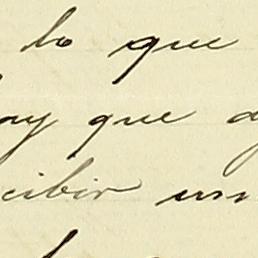 lo que
ay que
cibir un